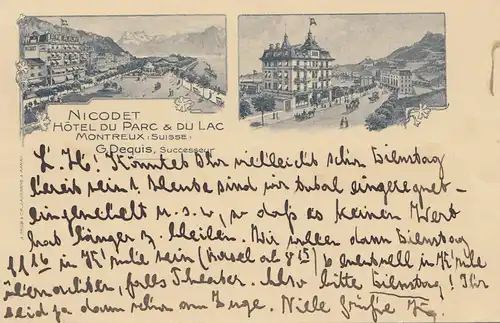 NICODET
HÔTEL DU PARC & DU LAC
MONTREUX (SUISSE)
G. Dequis, Successeur
L. H! Könntet Ihr vielleicht schon Dienstag
bereit sein? Heute sind wir total eingeregnet –
eingenebelt u.s.w, so daß es keinen Wert
hat länger z. bleiben. Wir wollen dann Dienstag
11 16 in sein (Basel ab 8 15) & eventuell in
übernachten, falls Theater. Also bitte Dienstag! Ihr
seid ja dann schon am Zuge. Viele Grüße